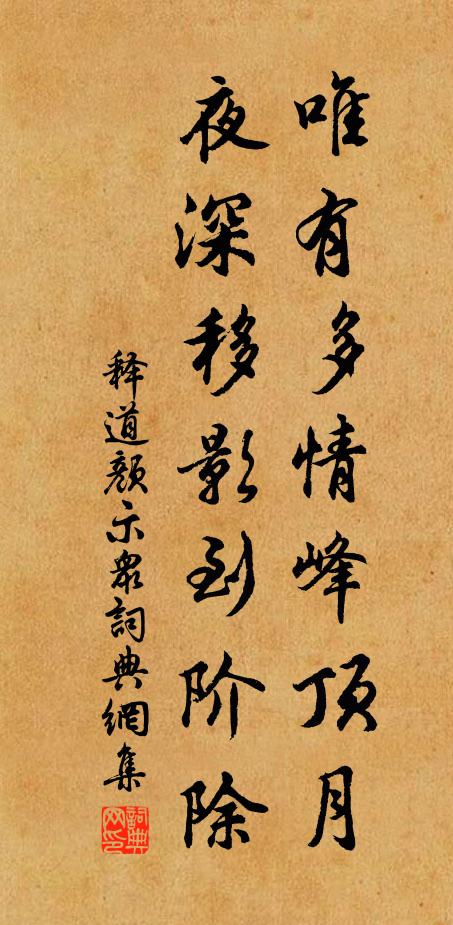 唯有多情峰顶月
夜深移影到阶除
释道颜示眾詞典網集
詞典网印